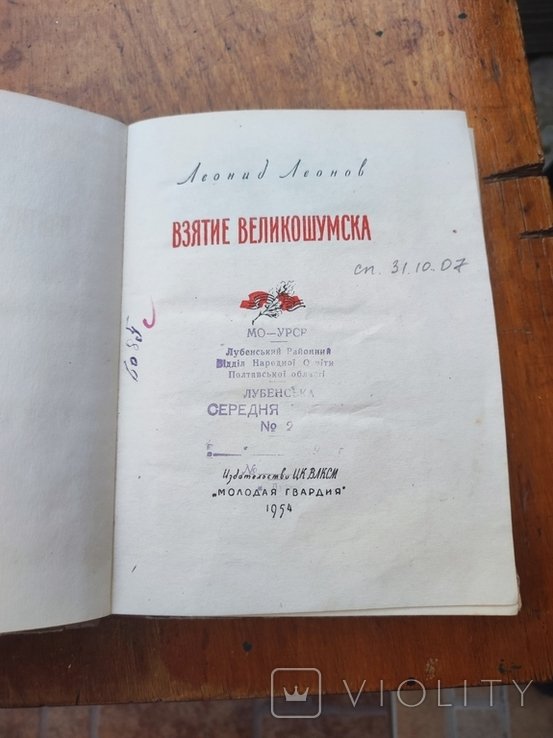 Леонид Леонов
ВЗЯТИЕ ВЕЛИКОШУМСКА
сп. 31.10.07
МО—УРСР
Лубенський Районний
Відділ Народної Освіти
Полтавської області
ЛУБЕНСЬКА
СЕРЕДНЯ
№ 2
№
Издательство ЦК ВЛКСМ
„МОЛОДАЯ ГВАРДИЯ"
1954
VIOLITY